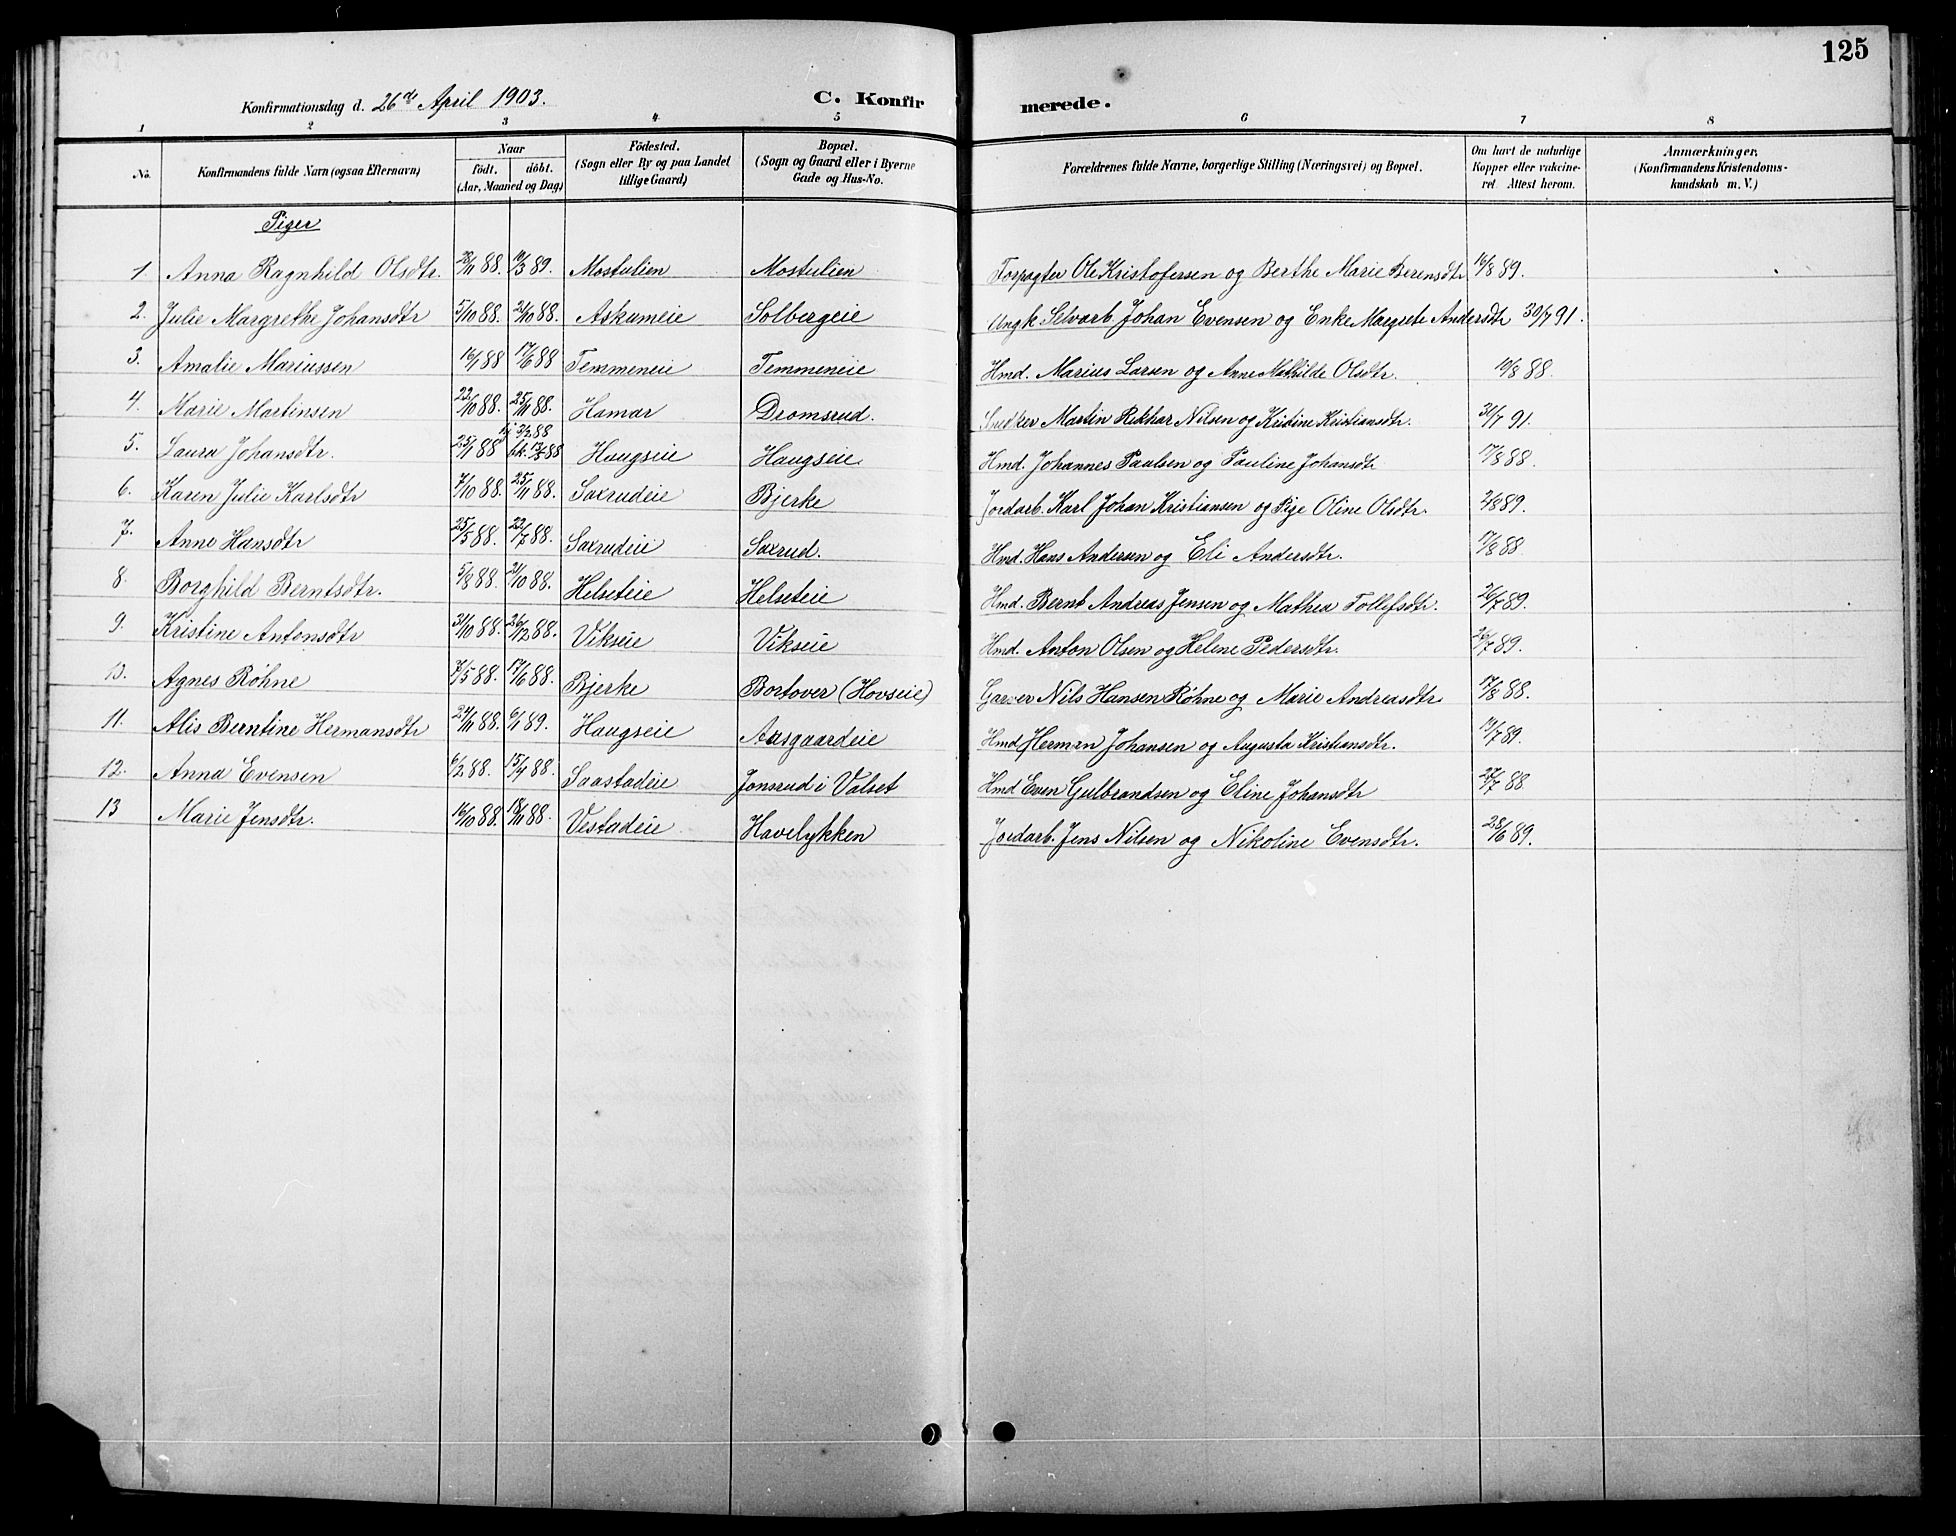 125
Konfirmationsdag d. 26de April 1903. C. Konfirmerede.
1 2 3 4 5 6 7 8
No. Konfirmandens fulde Navn (ogsaa Efternavn) Naar født. døbt. (Aar, Maaned og Dag) Fødested. (Sogn eller By og paa Landet tillige Gaard) Bopæl. (Sogn og Gaard eller i Byerne Gade og Hus-No. Forældrenes fulde Navne, borgerlige Stilling (Næringsvei) og Bopæl. Om havt de naturlige Kopper eller vakcineret. Attest herom. Anmærkninger, (Konfirmandens Kristendomskundskab m. V.)
Piger
1. Anna Ragnhild Olsdtr. 28/11 88. 10/3 89. Mostulien Mostulien Forpagter Ole Kristofersen og Berthe Marie Berensdtr 16/8 89.
2. Julie Margrethe Johansdtr 5/10 88. 21/10 88. Askumeie Solbergeie Ungk. Selvarb. Johan Evensen og Enke Margrete Andersdtr 30/7 91.
3. Amalie Mariussen 16/1 88 17/6 88 Temmeneie Temmeneie Hmd. Marius Larsen og Anne Mathilde Olsdtr. 10/8 88.
4. Marie Martinsen 22/10 88. 25/11 88. Hamar Dromsrud. Martin Rikhar Nilsen og Kristine Kristiansdtr. 31/7 91.
5. Laura Johansdtr. 25/1 88 hj 3/2 88 bk. 13/5 88 Haugseie Haugseie. Hmd. Johannes Paulsen og Pauline Johansdtr 17/8 88.
6. Karen Julie Karlsdtr 7/10 88. 25/11 88. Saxrudeie Bjerke Jordarb. Karl Johan Kristiansen og Pige Oline Olsdtr. 2/8 89.
7. Anne Hansdtr 25/5 88. 22/7 88. Saxrudeie Saxrud. Hmd. Hans Andersen og Eli Andersdtr. 17/8 88.
8. Borghild Berntsdtr. 5/8 88. 21/10 88. Helseteie Helseteie Hmd. Bernt Andreas Jensen og Mathea Tollefsdtr. 26/7 89.
9. Kristine Antonsdtr 31/10 88. 26/12 88. Vikseie Vikseie Hmd. Anton Olsen og Helene Pedersdtr. 26/7 89.
10. Agnes Røhne 7/5 88. 17/6 88. Bjerke Bortover (Hovseie) Garver Nils Hansen Røhne og Marie Andreasdtr. 17/8 88.
11. Alis Berntine Hermansdtr 24/11 88. 6/1 89. Haugseie Aasgaardeie Hmd. Herman Johansen og Augusta Kristiansdtr. 19/7 89.
12. Anna Evensen 6/2 88. 15/4 88. Saastadeie Jonsrud i Valset Hmd Even Gulbrandsen og Eline Johansdtr 27/7 88
13 Marie Jensdtr. 16/10 88. 18/11 88. Vestadeie Havelykken Jordarb. Jens Nilsen og Nikoline Evensdtr. 28/6 89.